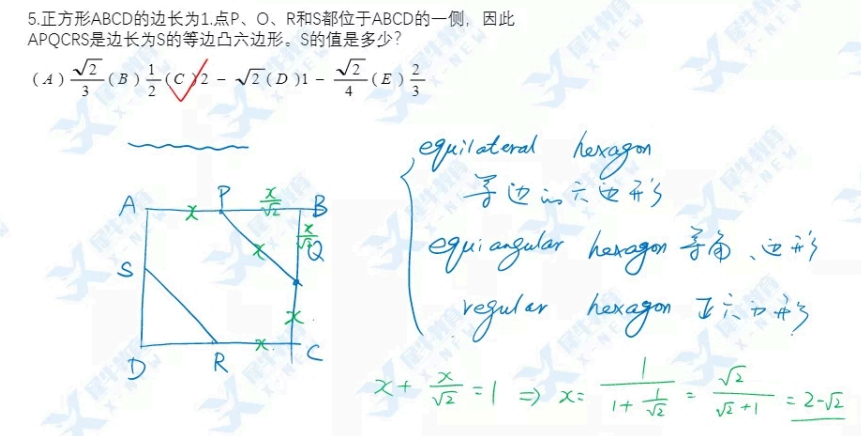 5.正方形ABCD的边长为1.点P、O、R和S都位于ABCD的一侧，因此
APQCRS是边长为S的等边凸六边形。S的值是多少?
(A) √2/3 (B) 1/2 (C) 2 - √2 (D) 1 - √2/4 (E) 2/3
equilateral hexagon
等边的六边形
equiangular hexagon 等角六边形
regular hexagon 正六边形
A x P x/√2 B
x/√2
Q
x
S
x
D R x C
x + x/√2 = 1 ⇒ x = 1/(1+1/√2) = √2/(√2+1) = 2-√2